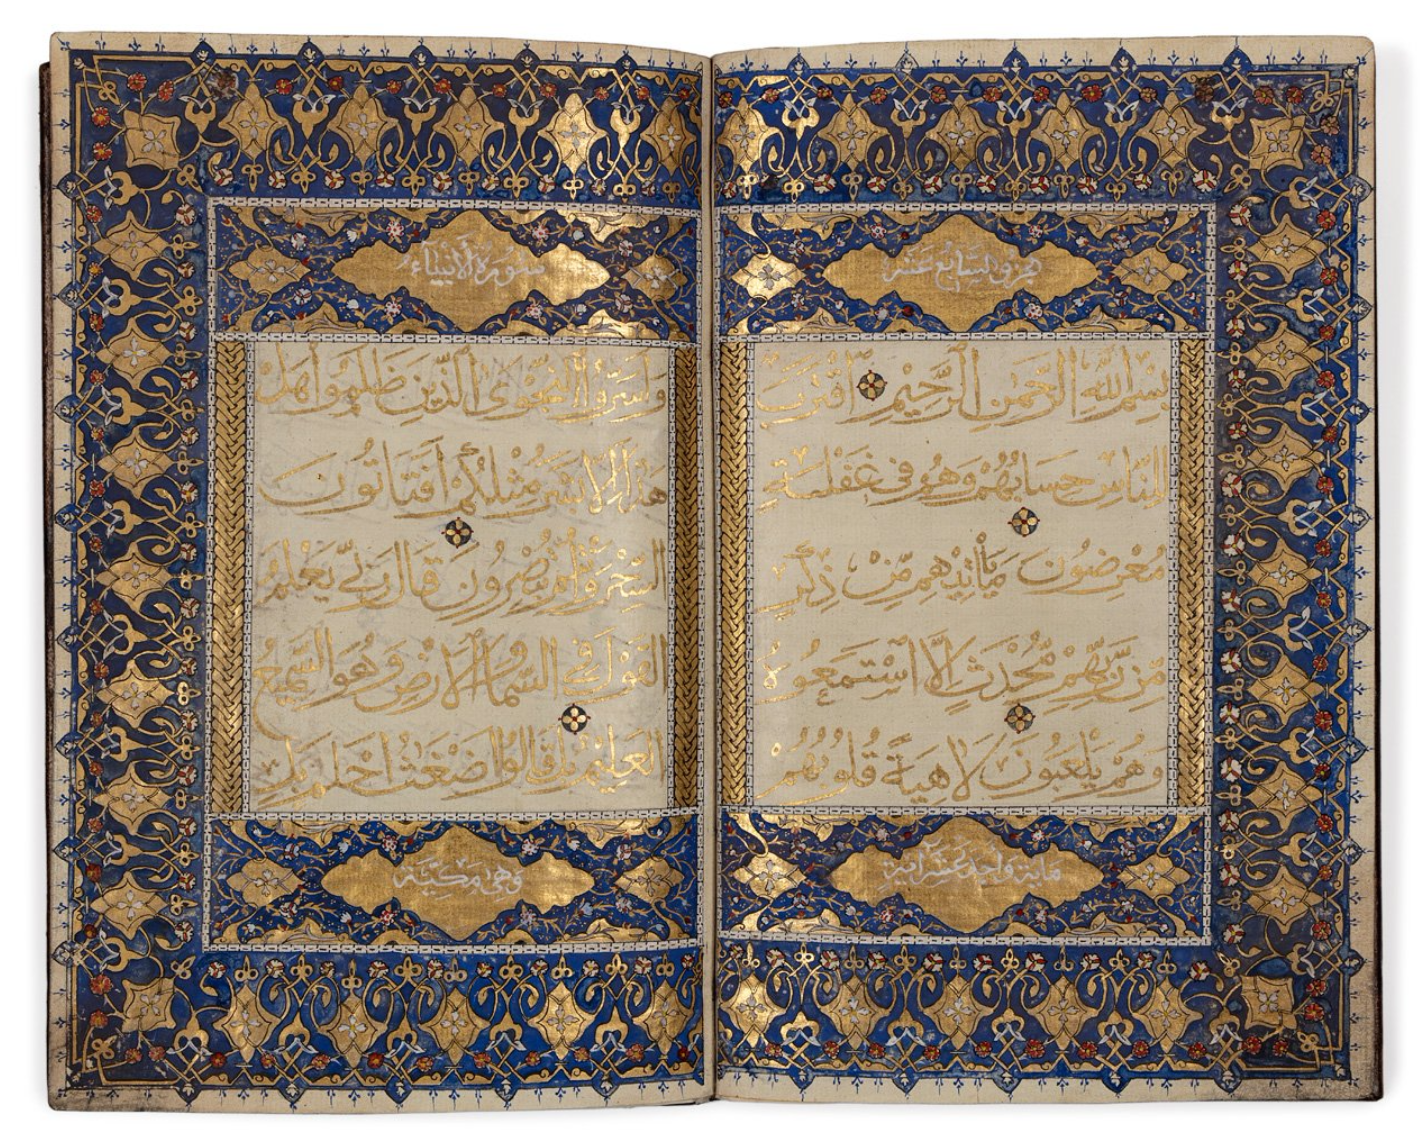 جزو السابع عشر
بِسْمِ اللهِ الرَّحْمٰنِ الرَّحِيْمِ اَقْتَرَبَ
لِلنَّاسِ حِسَابُهُمْ وَهُمْ فِي غَفْلَةٍ
مُعْرِضُونَ مَا يَأْتِيهِم مِّنْ ذِكْرٍ
مِّن رَّبِّهِمْ مُّحْدَثٍ اِلَّا اَسْتَمَعُوهُ
وَهُمْ يَلْعَبُونَ لَاهِيَةً قُلُوبُهُمْ
مائة واحد عشر آية
سورة الأنبياء
وَاَسَرُّوا اَلنَّجْوَى اَلَّذِينَ ظَلَمُوا هَلْ
هٰذَا اِلَّا بَشَرٌ مِثْلُكُمْ اَفَتَاتُونَ
السِّحْرَ وَاَنْتُمْ تُبْصِرُونَ قَالَ رَبِّي يَعْلَمُ
القَوْلَ فِي السَّمَاءِ وَالْاَرْضِ وَهُوَ السَّمِيعُ
العَلِيْمُ بَلْ قَالُوا اَضْغٰثُ اَحْلٰمٍ بَلِ
وهي مكية